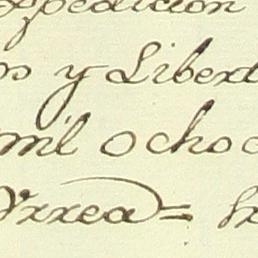 expedicion
os y Libert
mil ochoc
Yrrea=